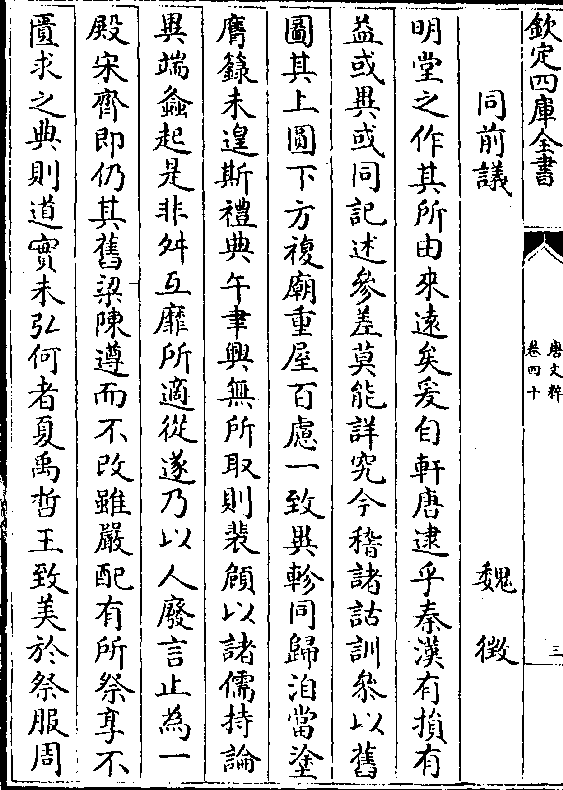 欽定四庫全書
唐文粹
卷四十
三
同前議
魏徵
明堂之作其所由來遠矣爰自軒唐逮乎秦漢有損有
益或異或同記述參差莫能詳究今稽諸詁訓叅以舊
圖其上圓下方複廟重屋百慮一致異軫同歸洎當塗
膺籙未遑斯禮典午聿興無所取則裴頠以諸儒持論
異端蠭起是非舛互靡所適從遂乃以人廢言止為一
殿宋齊即仍其舊梁陳遵而不改雖嚴配有所祭享不
匱求之典則道實未弘何者夏禹哲王致美於祭服周